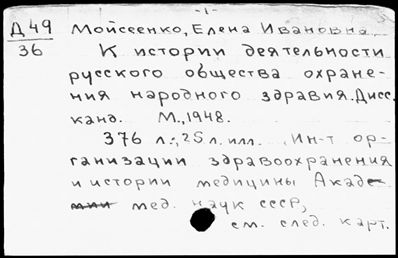 -1-
Д 49 Мойсеенко, Елена Ивановна.
36 К истории деятельности
русского общества охране-
ния народного здравия. Дисс.
канд. М., 1948.
376 л.; 25 л. илл. Ин-т ор-
ганизации здравоохранения
и истории медицины Акаде-
мии мед. наук СССР,
см. след. карт.